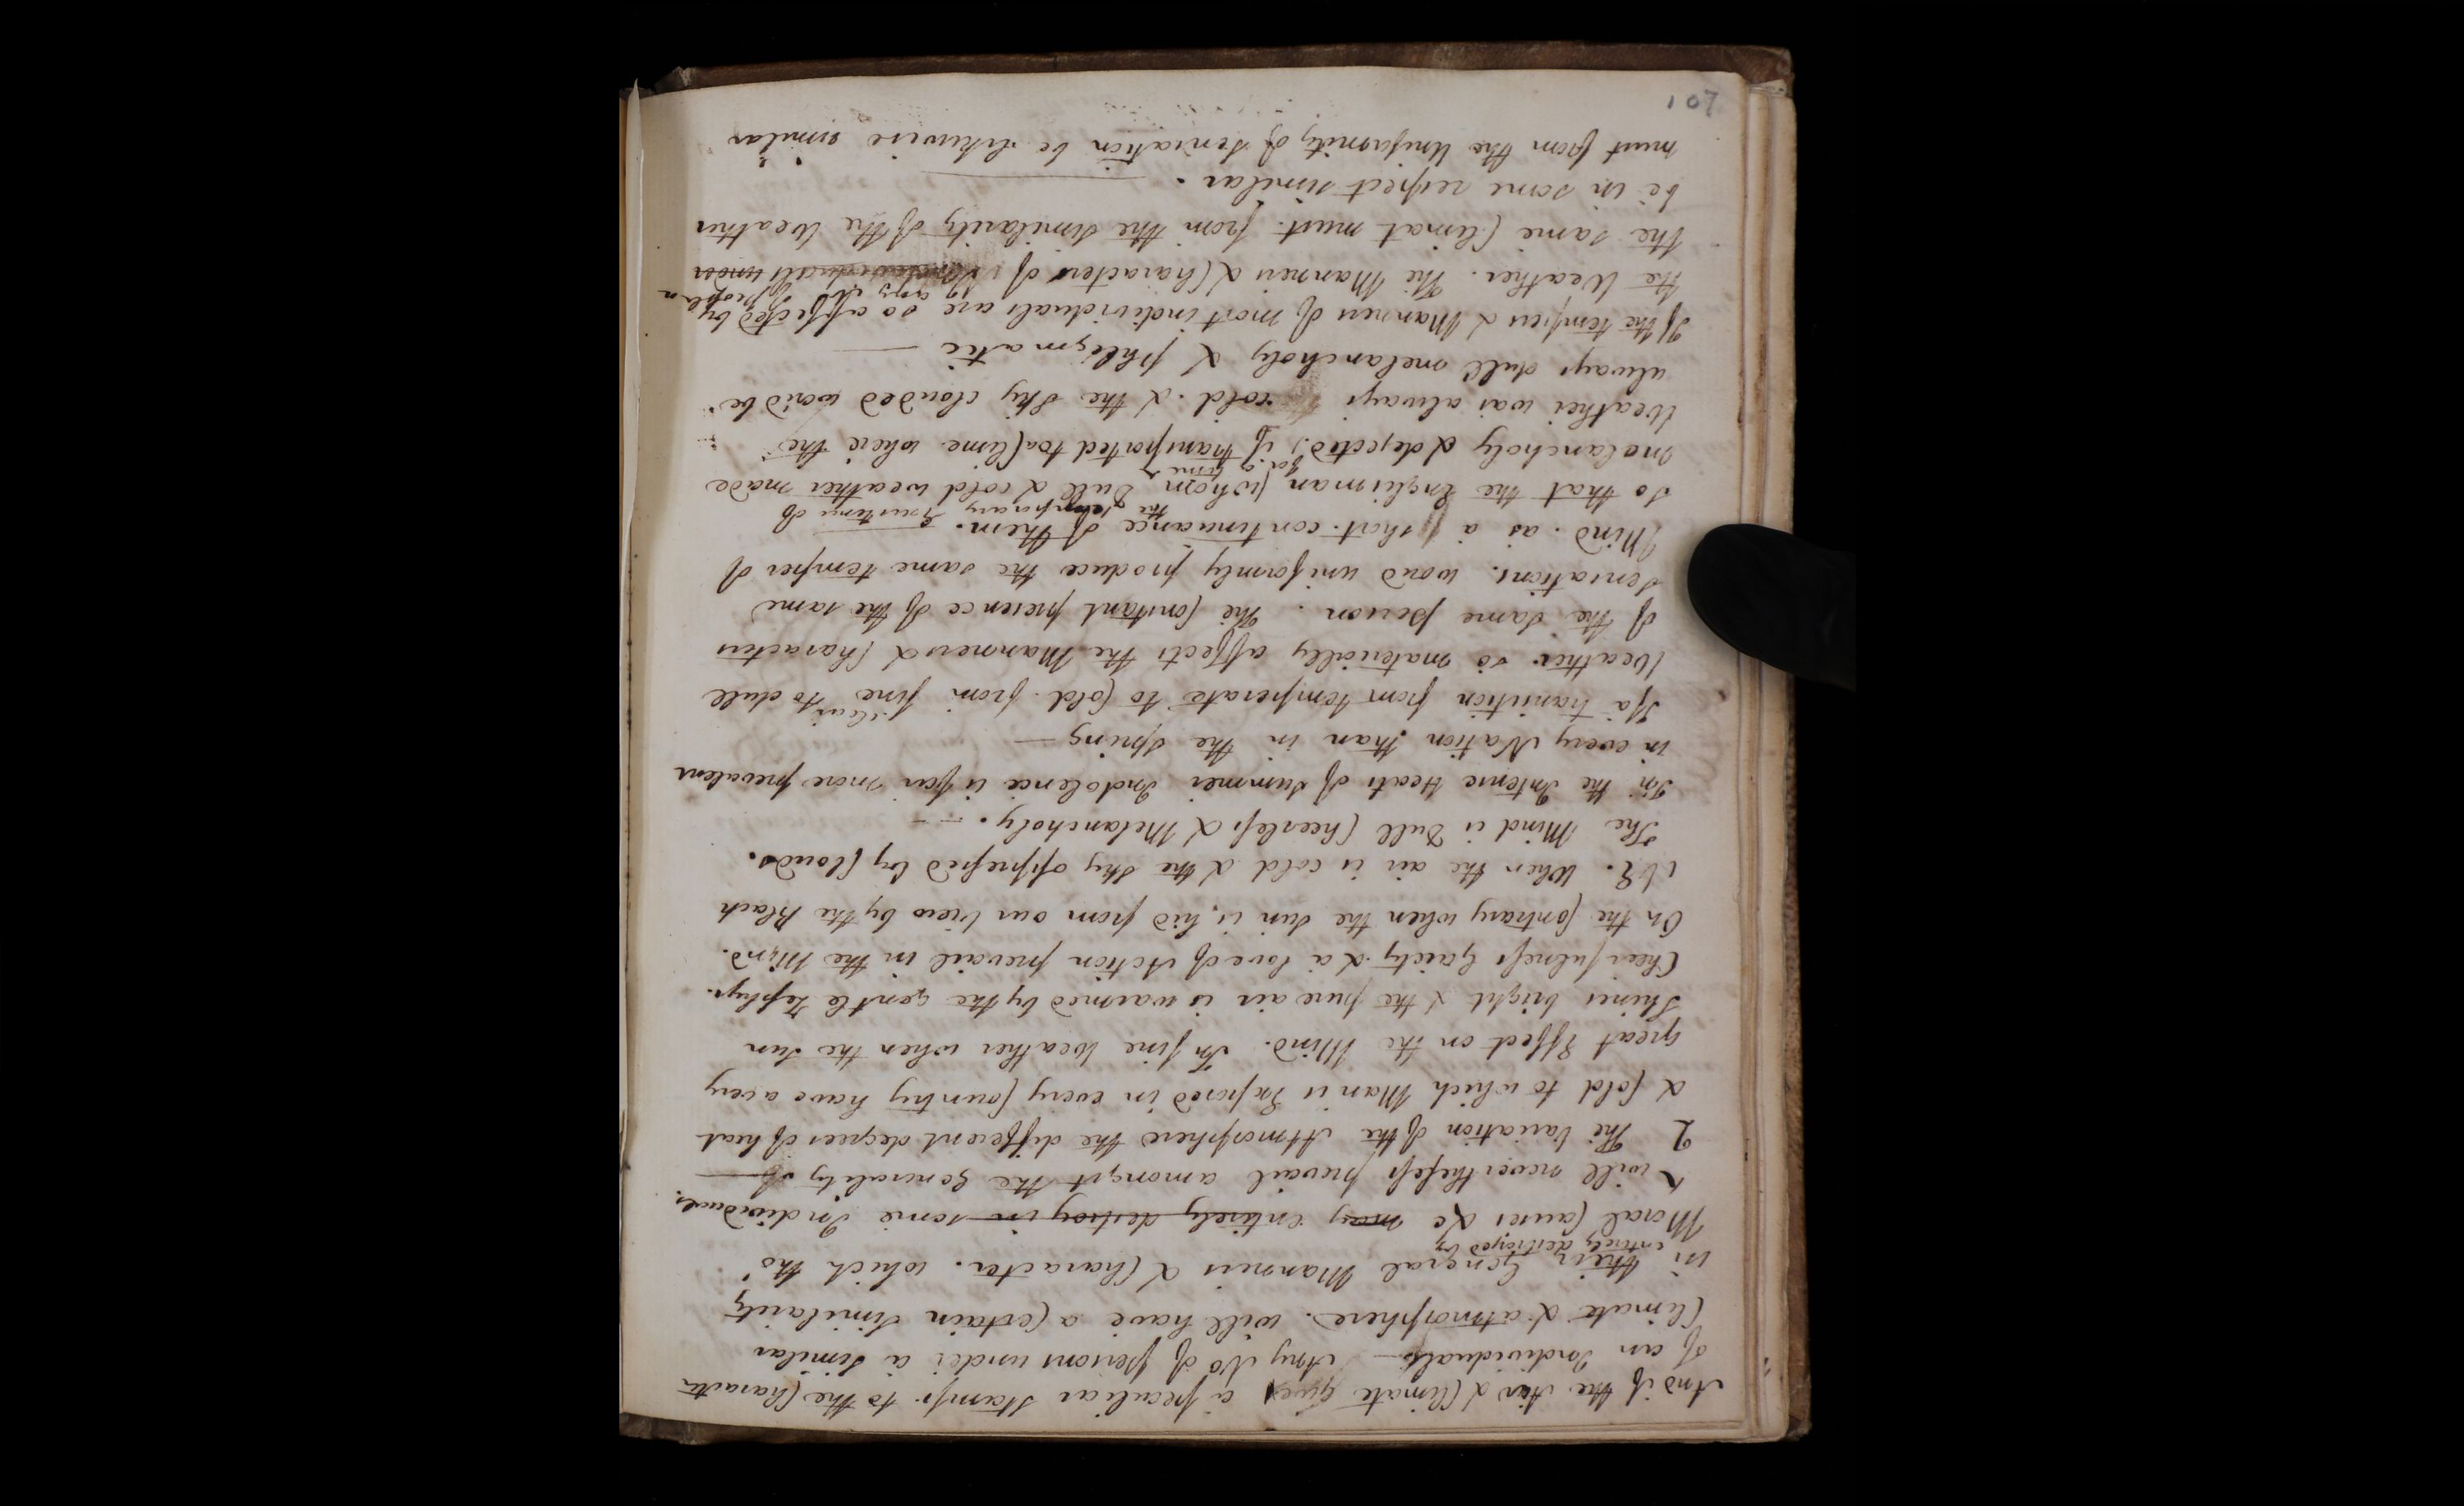 And if the Air & Climate gives a peculiar stamp to the Character
of an Individual — Any No of persons under a similar
Climate & atmosphere. will have a Certain Similarity
in their General Manners & Character. which tho'
entirely destroyed by
Moral Causes &c may entirely destroy in some Individuals.
will nevertheless prevail amongst the Generality of
2 The Variation of the Atmosphere the different degrees of heat
& Cold to which Man is Exposed in every Country have a very
great Effect on the Mind. In fine Weather when the Sun
Shines bright & the pure air is warmed by the gentle Zephyr.
Cheerfulness Gaiety & a love of Action prevail in the Mind.
On the Contrary when the Sun is hid from our View by the Black
N.E. When the air is cold & the sky oppressed by Clouds.
The Mind is Dull Cheerless & Melancholy. —
In the Intense Heats of Summer Indolence is far more prevalent
in every Nation than in the Spring —
If a transition from temperate to Cold. from fine to dull
Weather so materially affects the Manners & Characters
of the same person. The Constant presence of the same
Sensations. woud uniformly produce the same temper of
Mind. as a short continuance of them.
the temporary Existence of
So that the Englisman (whom Dull & cold weather made
for a time
melancholy & dejected) if transported to a Clime where the
Weather was always cold & the Sky clouded wou'd be
always dull melancholy & phlegmatic —
If the tempers & Manners of most individuals are so affected by
the Weather. The Manners & Characters of Individuals under
any No of people in
the same Climat must from the Similarity of the Weather
be in some respect similar.
must from the Uniformity of Sensation be likewise similar
107